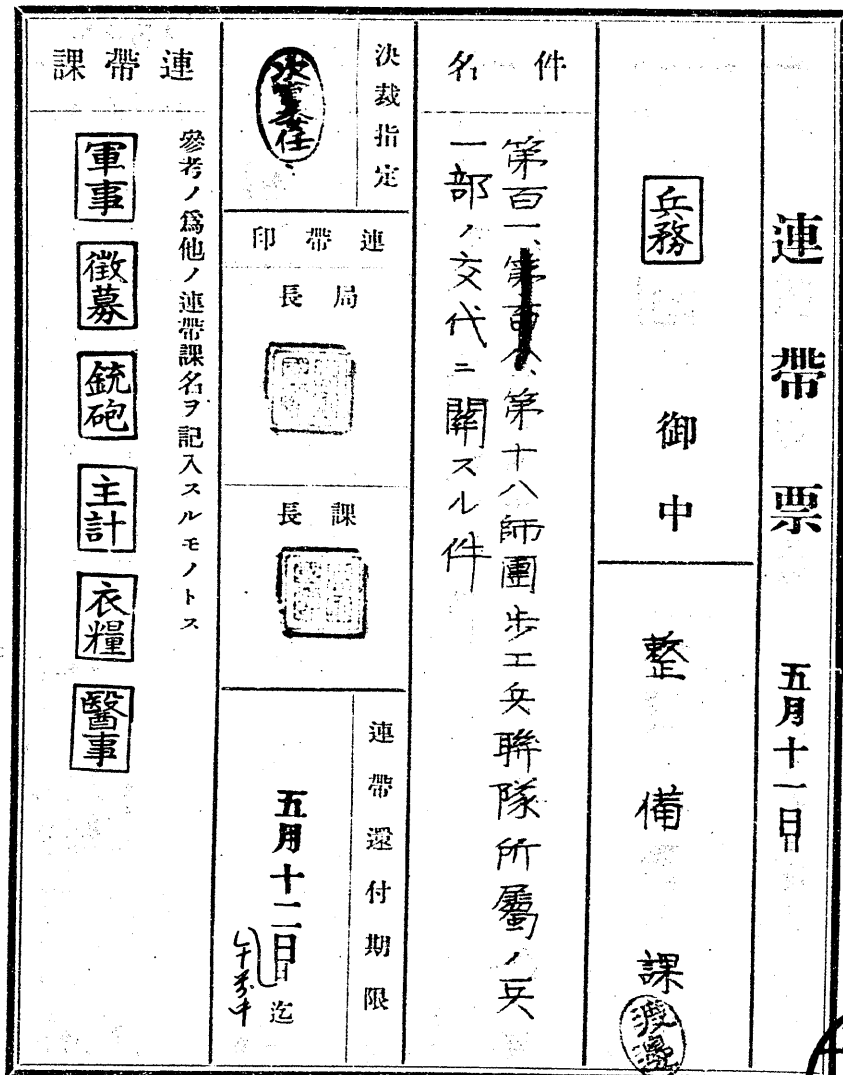 連帶票　五月十一日
兵務　御中
整備課
渡邊
件名
第百一、第十八師團歩工兵聯隊所屬ノ兵
一部ノ交代ニ關スル件
決裁指定
委任
連帶印
局長
課長
連帶還付期限
五月十二日迄
午前中
連帶課
參考ノ爲他ノ連帶課名ヲ記入スルモノトス
軍事
徵募
銃砲
主計
衣糧
醫事